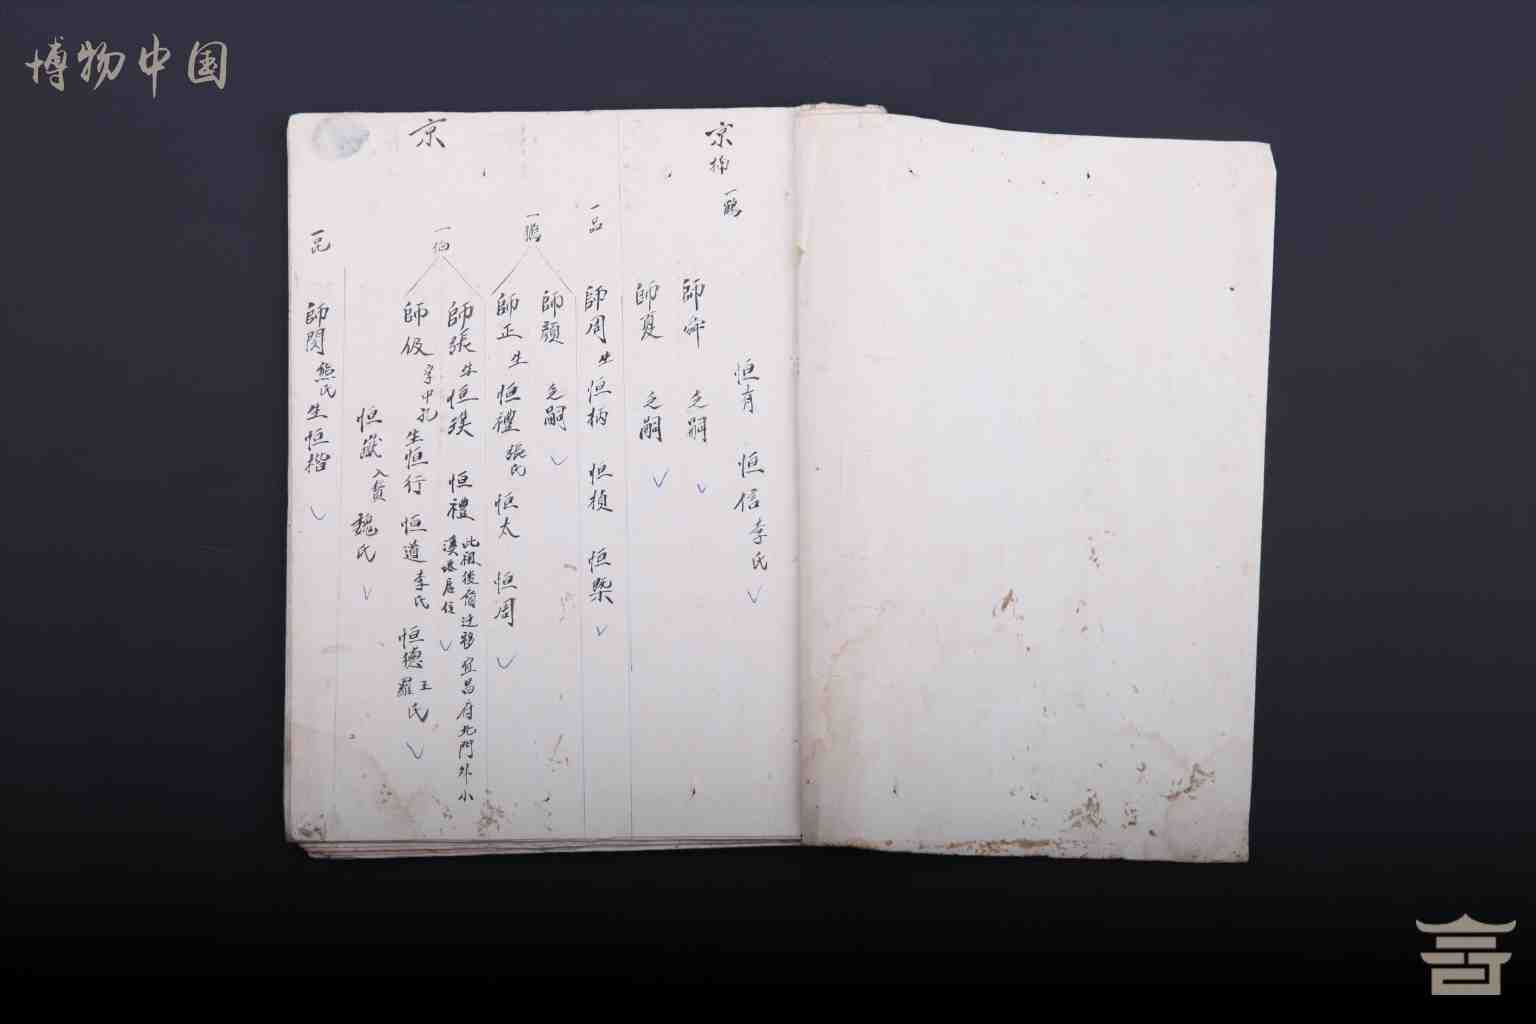 博物中国
京
一鶴
恒育 恒信李氏
師舜 乏嗣
師夏 乏嗣
京
一品
師周生恒柄 恒楨 恒槩
一鶚
師顏 乏嗣
師正生恒禮張氏 恒太 恒周
一伯
師張生恒璞 恒禮 此祖後裔迁移宜昌府北門外小溪塔居住
師伋字中孔生恒行 恒道李氏 恒德王羅氏
恒嶽入贅魏氏
一昆
師閔熊氏生恒楷